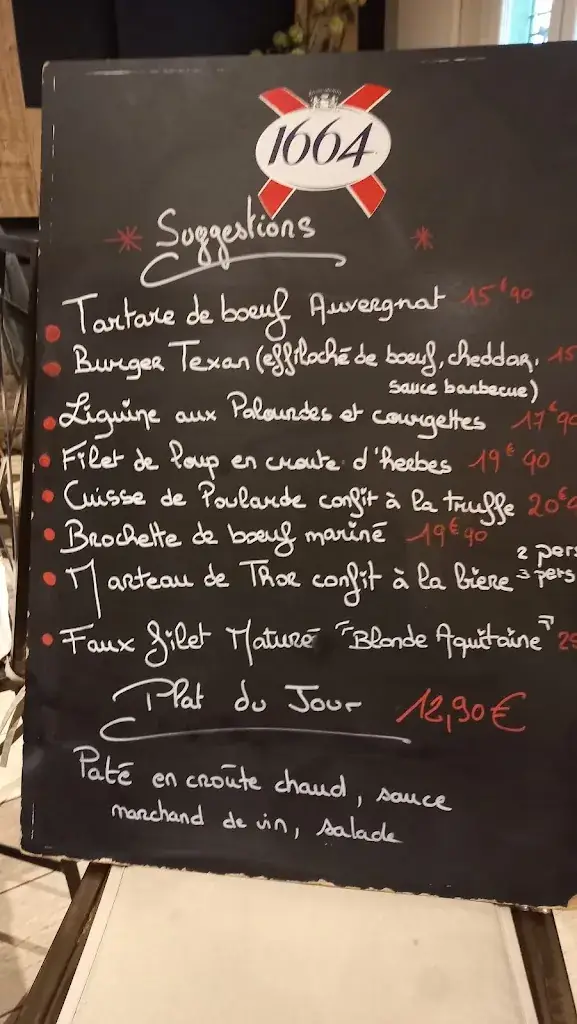 1664
Suggestions
Tartare de boeuf Auvergnat 15€90
Burger Texan (effiloché de boeuf, cheddar, 15
sauce barbecue)
Liguine aux Palourdes et courgettes 17€90
Filet de loup en croute d'herbes 19€90
Cuisse de Poularde confit à la truffe 20€
Brochette de boeuf mariné 19€90
2 pers
Marteau de Thor confit à la bière 3 pers
Faux filet Maturé "Blonde Aquitaine" 2
Plat du Jour 12,90€
Paté en croûte chaud, sauce
marchand de vin, salade